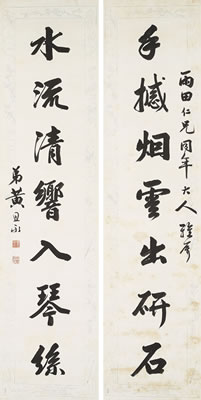 雨田仁兄同年大人雅屬
手撼烟雲出研石
水流清響入琴絲
弟黃思永